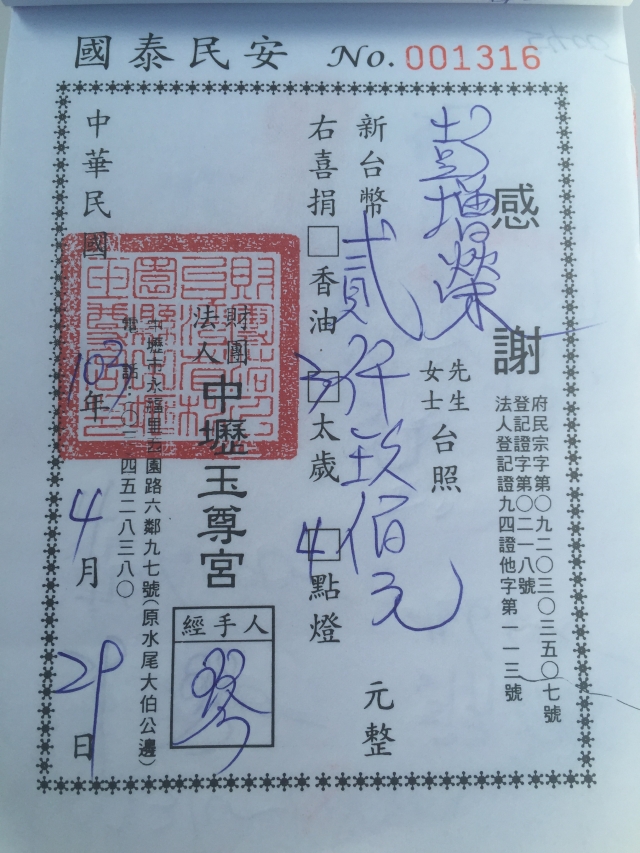 國泰民安 No. 001316
感謝
府民宗字第〇九二〇三〇三五〇七號
登記證字第〇二一八號
法人登記證九四證他字第一一三號
彭增榮 先生 女士 台照
新台幣 貳仟玖佰元 元整
右喜捐 □香油 3□太歲 4□點燈
財團法人 中壢玉尊宮
經手人
中壢市永福里 園路六鄰九七號(原水尾大伯公邊)
電話 四五二八三八〇
中華民國 103年 4月 29日